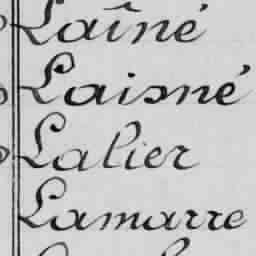 Laîné
Laisné
Lalier
Lamarre